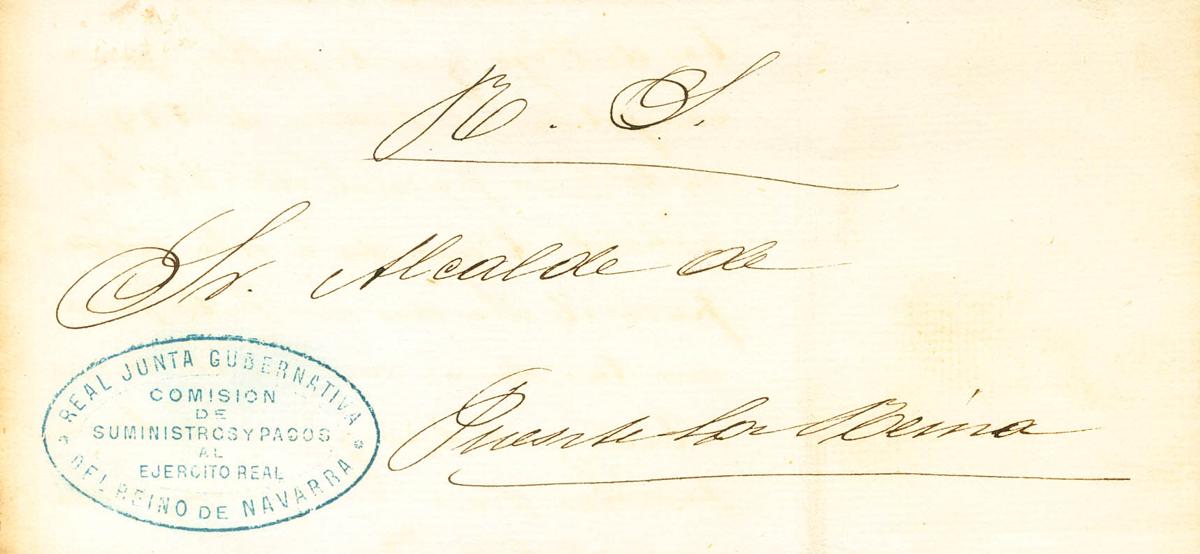 R. S.
Sr. Alcalde de
Puente la Reina
REAL JUNTA GUBERNATIVA
COMISION
DE
SUMINISTROS Y PAGOS
AL
EJERCITO REAL
DEL REINO DE NAVARRA